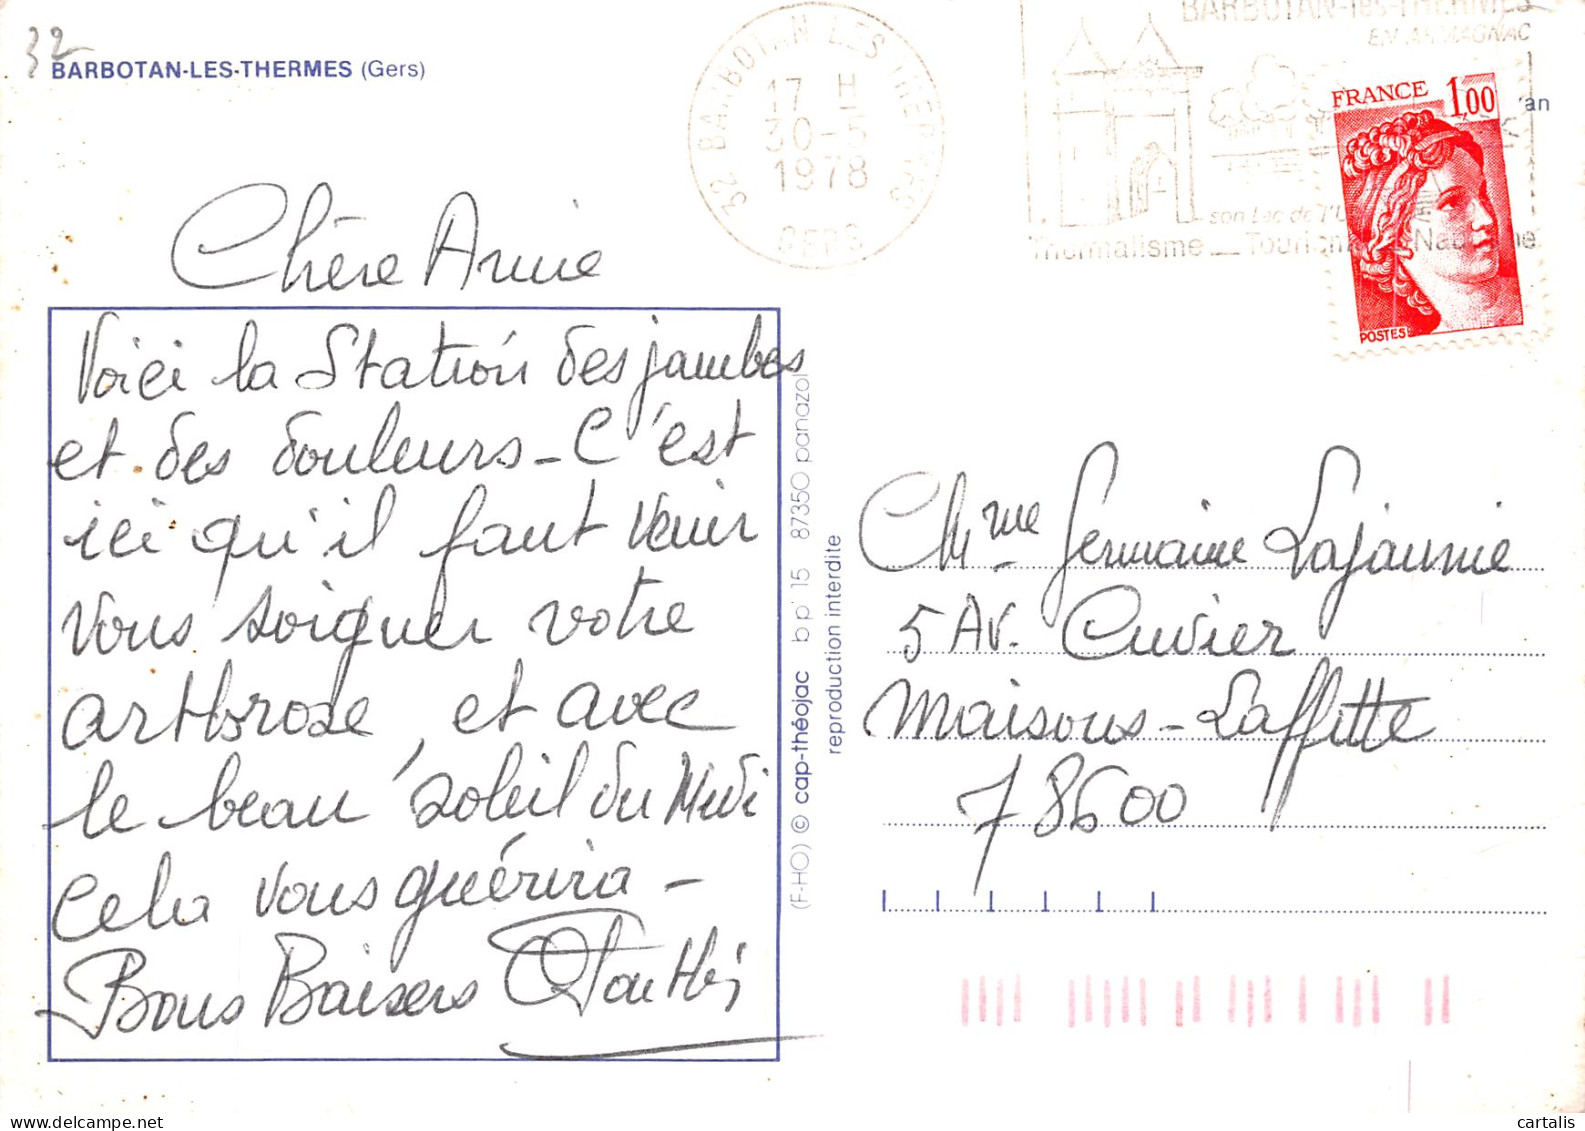 32
BARBOTAN-LES-THERMES (Gers)
32 BARBOTAN LES THERMES
17 H
30-5
1978
GERS
BARBOTAN-les-THERMES
EN ARMAGNAC
son Lac de l'U
Thermalisme _ Tourisme _ Nautisme
FRANCE 1,00
POSTES
an
Chère Amie
Voici la Station des jambes
et des douleurs - C'est
ici qu'il faut venir
vous soigner votre
arthrose, et avec
le beau soleil du Midi
Cela vous guérira -
Bons Baisers
(F-HO) © cap-théojac bp 15 87350 panazol
reproduction interdite
Mme Germaine Lajaunie
5 Av. Cuvier
Maisons-Laffitte
78600
cartalis